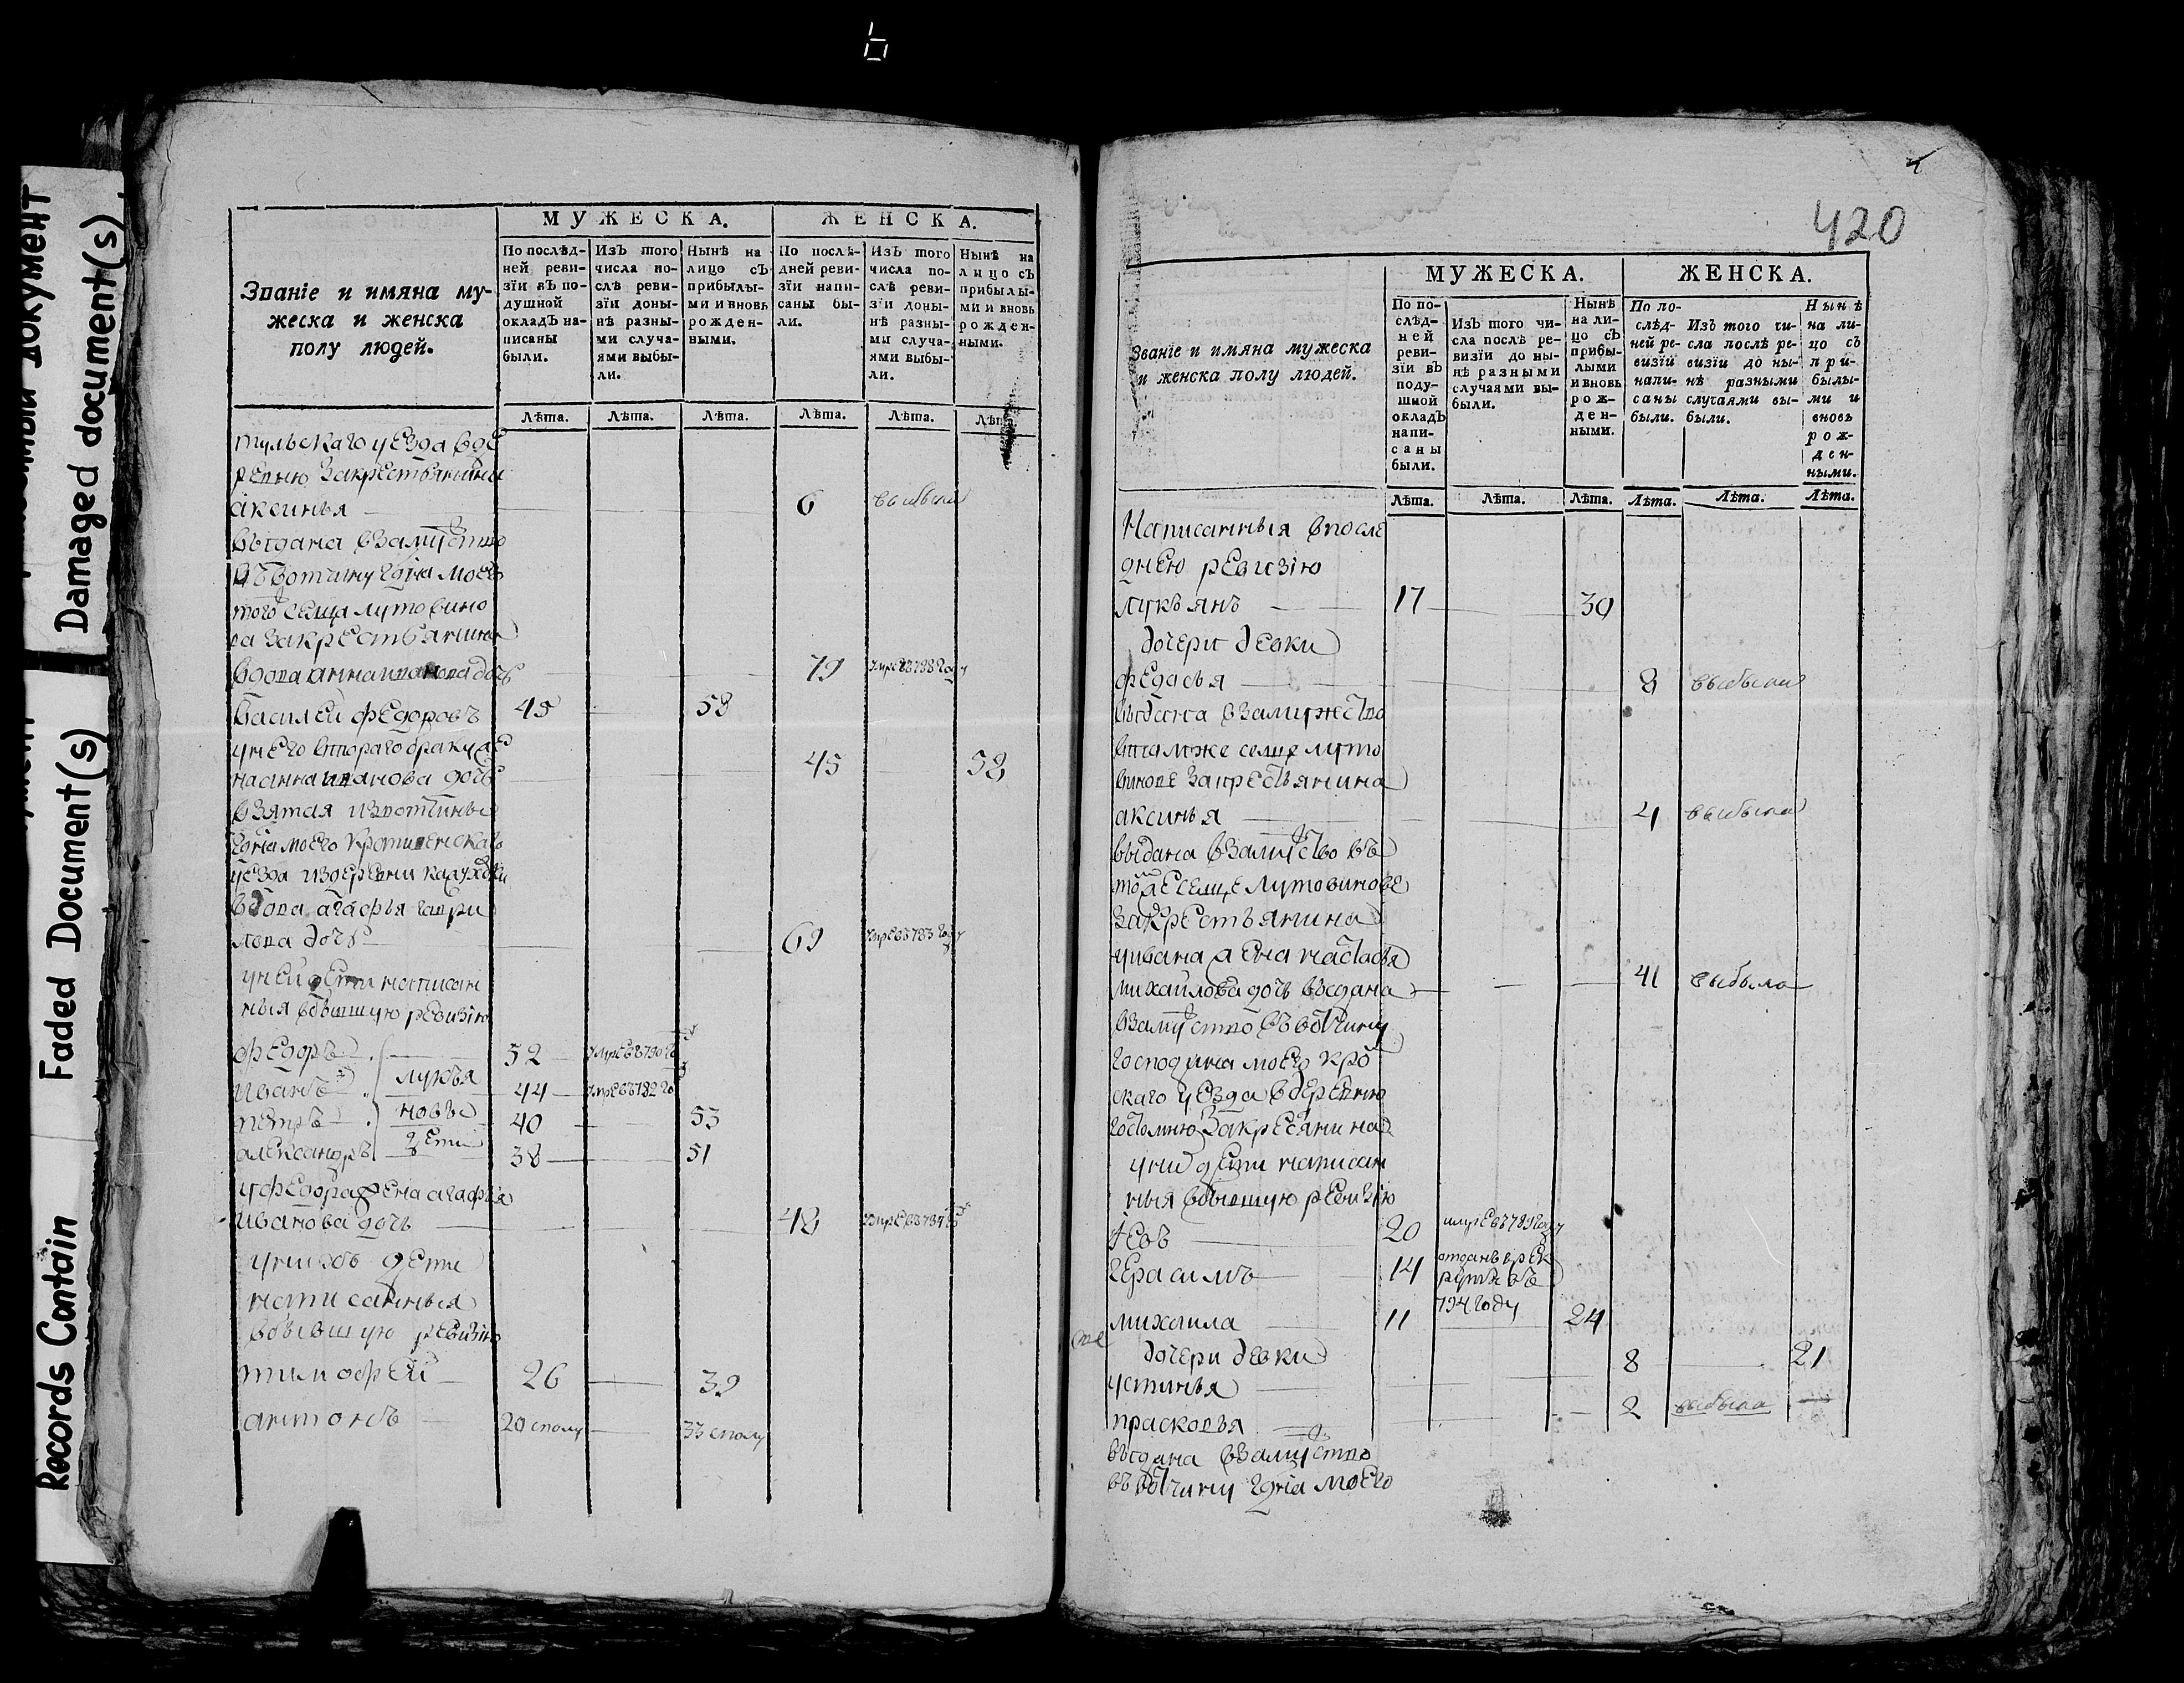 Damaged document(s)
Faded Document(s)
Records Contain
МУЖЕСКА.
ЖЕНСКА.
Званїе и имяна му-
жеска и женска
полу людей.
По послѣд-
ней реви-
зїи въ по-
душной
окладъ на-
писаны
были.
Изъ того
числа по-
слѣ реви-
зїи доны-
нѣ разны-
ми случа-
ями выбы-
ли.
Нынѣ на
лицо съ
прибылы-
ми и вновь
рожден-
ными.
По послѣ-
дней реви-
зїи напи-
саны бы-
ли.
Изъ того
числа по-
слѣ реви-
зїи доны-
нѣ разны-
ми случа-
ями выбы-
ли.
Нынѣ на
лицо съ
прибылы-
ми и вновь
рожден-
ными.
Лѣта. Лѣта. Лѣта. Лѣта. Лѣта. Лѣта.
тульскаго уезда вде
ревню закрестьянина
аксинья 6 выбыла
выдана взамуство
въ вотчину гдна моего
того селца лутовино
ва закрестьянина
вдова анна иванова дочь 79 умре въ 788 году
василей федоровъ 45 58
унего втораго браку же
на анна иванова дочь 45 58
взятая извотчины
гдна моего кромскаго
уезда издеревни
вдова агафья гаври
лова дочь 69 умре въ 783 году
уней дети написан
ныя вбывшую ревизию
федоръ 52 умре въ 790 го
иванъ лукья 44 умре въ 782 го
петръ новы 40 53
александръ дети 38 51
уфедора жена агафья
иванова дочь 48 умре въ 784 го
унихъ дети
написанныя
вбывшую ревизию
тимофей 26 39
антонъ 20 сполу 33 сполу
420
МУЖЕСКА.
ЖЕНСКА.
Званїе и имяна мужеска
и женска полу людей.
По по-
слѣд-
ней
реви-
зїи въ
поду-
шной
окладъ
напи-
саны
были.
Изъ того чи-
сла послѣ ре-
визїи до ны-
нѣ разными
случаями вы-
были.
Нынѣ
на ли-
цо съ
прибы-
лыми
и вновь
рож-
ден-
ными.
По по-
слѣд-
ней ре-
визїи
напи-
саны
были.
Изъ того чи-
сла послѣ ре-
визїи до ны-
нѣ разными
случаями вы-
были.
Нынѣ
на ли-
цо съ
при-
былы-
ми и
вновь
рож-
ден-
ными.
Лѣта. Лѣта. Лѣта. Лѣта. Лѣта. Лѣта.
Написанныя впосле
днею ревизїю
лукьянъ 17 30
дочери девки
федосья 8 выбыла
выдана взамужство
втомже селце луто
винове закрестьянина
аксинья 4 выбыла
выдана взамуство въ
томже селце лутовинове
закрестьянина
уивана жена настасья
михайлова дочь выдана 41 выбыла
взамуство въ вотчину
господина моего кро
скаго уезда вдеревню
гостомлю закресянина
унихъ дети написан
ныя вбывшую ревизїю
20 умре въ 789 году
герасимъ 14 отданъ врек
руты въ
794 году
михаила 11 24
дочери девки
устинья 8 21
прасковья 2 выбыла
выдана взамуство
въ вотчину гдна моего